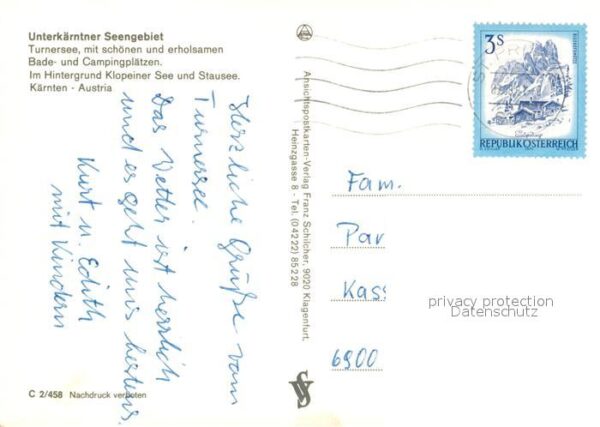 Unterkärntner Seengebiet
Turnersee, mit schönen und erholsamen
Bade- und Campingplätzen.
Im Hintergrund Klopeiner See und Stausee.
Kärnten - Austria
Herzliche Grüße vom
Turnersee.
Das Wetter ist herrlich
und es geht uns bestens.
Kurt u. Edith
mit Kindern
C 2/458 Nachdruck verboten
Ansichtspostkarten-Verlag Franz Schilcher, 9020 Klagenfurt,
Heinzgasse 8 - Tel. (04222) 85228
3S
REPUBLIK ÖSTERREICH
Fam.
Par
Kass
6900
privacy protection
Datenschutz